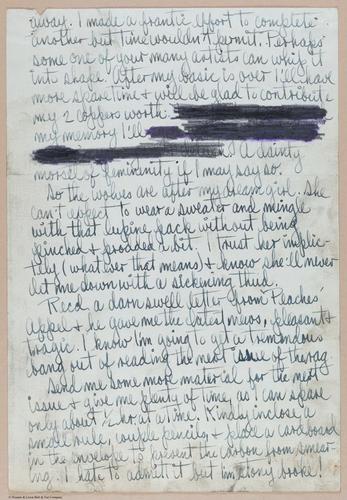 away. I made a frantic effort to complete
another but time wouldn't permit. Perhaps
some one of your many artists can whip it
into shape. After my basic is over I'll have
more spare time & will be glad to contribute
my 2 coppers worth.
my memory I'll
? A dainty
morsel of femininity if I may say so.
So the wolves are after my dream girl. She
can't expect to wear a sweater and mingle
with that lupine pack without being
pinched & prodded a bit. I trust her implic-
itly (whatever that means) & know she'll never
let me down with a sickening thud.
Recd a darn swell letter from "Peaches"
Appel & he gave me the latest news, pleasant &
tragic. I know I'm going to get a tremendous
bang out of reading the next issue of the rag
Send me some more material for the next
issue & give me plenty of time, as I can spare
only about ½ hr. at a time. Kindly inclose a
small rule, couple pencils, & place a cardboard
in the envelope to prevent the carbon from smear-
ing. I hate to admit it but I'm stony broke!